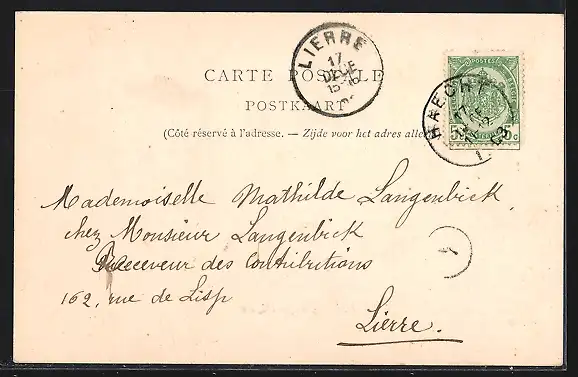 LIERRE
17
DECE
15-16
CARTE POSTALE
POSTKAART
(Côté réservé à l'adresse. — Zijde voor het adres alleen
POSTES
5c 5c
HAECHT
Mademoiselle Mathilde Langenbick,
chez Monsieur Langenbick
Receveur des Contributions
162, rue de Lisp
Lierre.